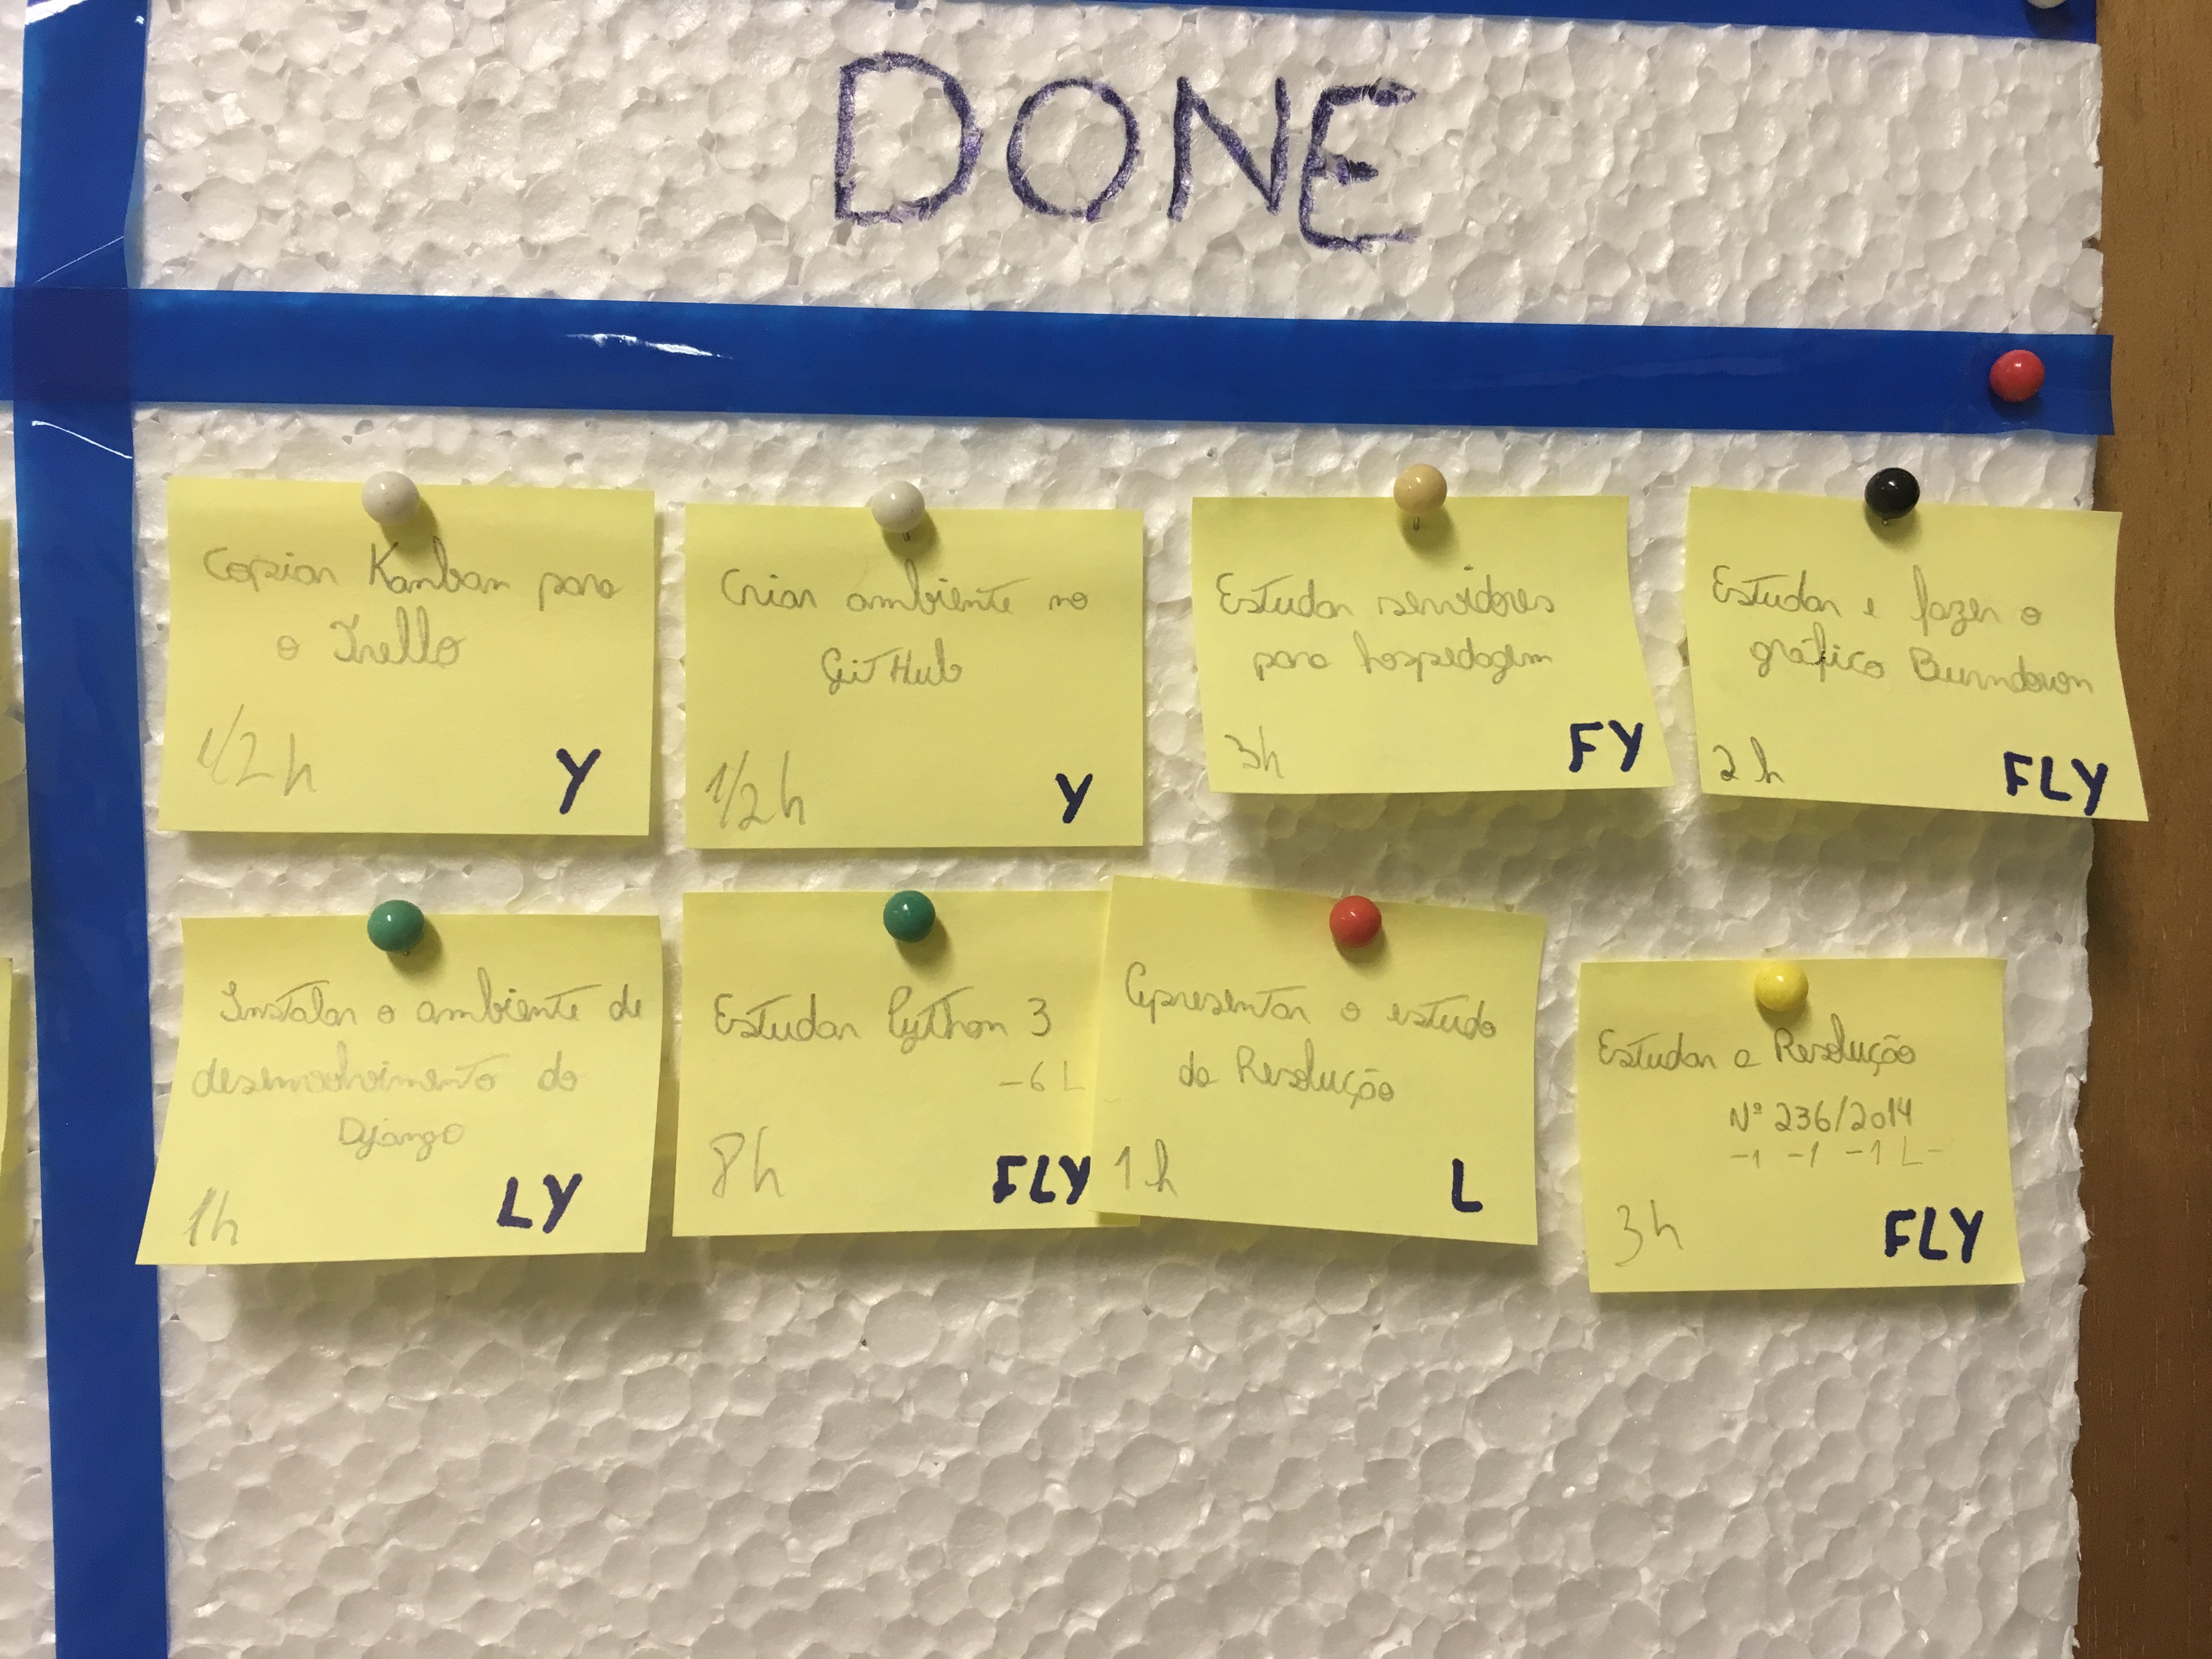 DONE
Copiar Kanban para
o Trello
1/2 h
Y
Criar ambiente no
GitHub
1/2 h
Y
Estudar servidores
para hospedagem
3h
FY
Estudar e fazer o
gráfico Burndown
2 h
FLY
Instalar o ambiente de
desenvolvimento do
Django
1h
LY
Estudar Python 3
-6 L
8h
FLY
Apresentar o estudo
da Resolução
1 h
L
Estudar a Resolução
Nº 236/2014
-1 -1 -1 L-
3h
FLY